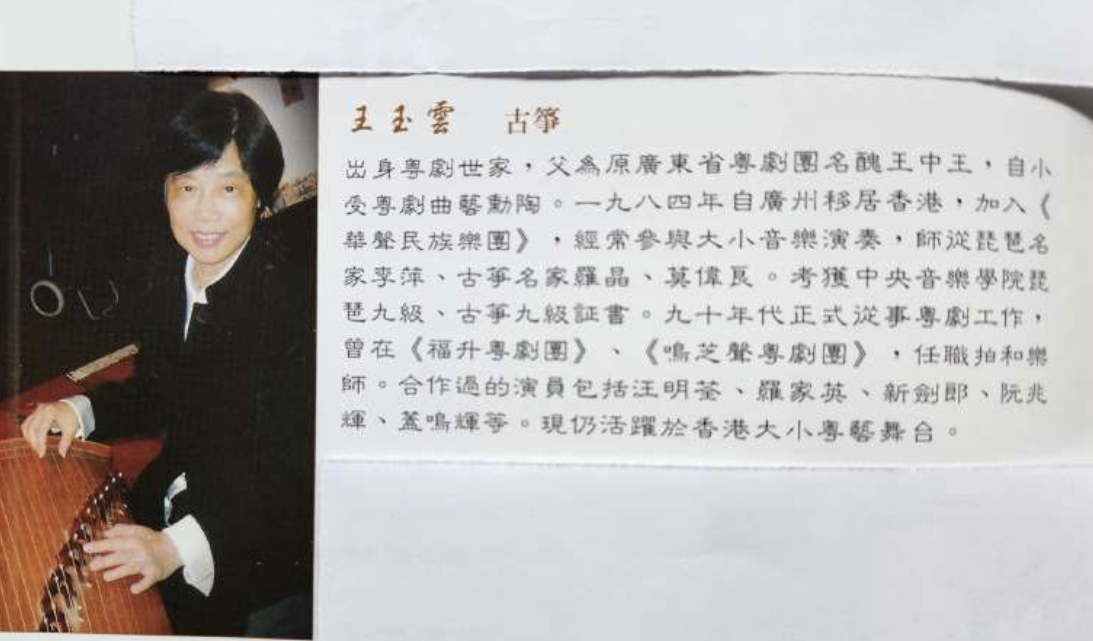 王玉雲 古箏
出身粵劇世家，父為原廣東省粵劇團名醜王中王，自小
受粵劇曲藝勳陶。一九八四年自廣州移居香港，加入《
華聲民族樂團》，經常參與大小音樂演奏，師從琵琶名
家李萍、古箏名家羅晶、莫偉良。考獲中央音樂學院琵
琶九級、古箏九級証書。九十年代正式從事粵劇工作，
曾在《福升粵劇團》、《鳴芝聲粵劇團》，任職拍和樂
師。合作過的演員包括汪明荃、羅家英、新劍郎、阮兆
輝、蓋鳴輝等。現仍活躍於香港大小粵藝舞台。